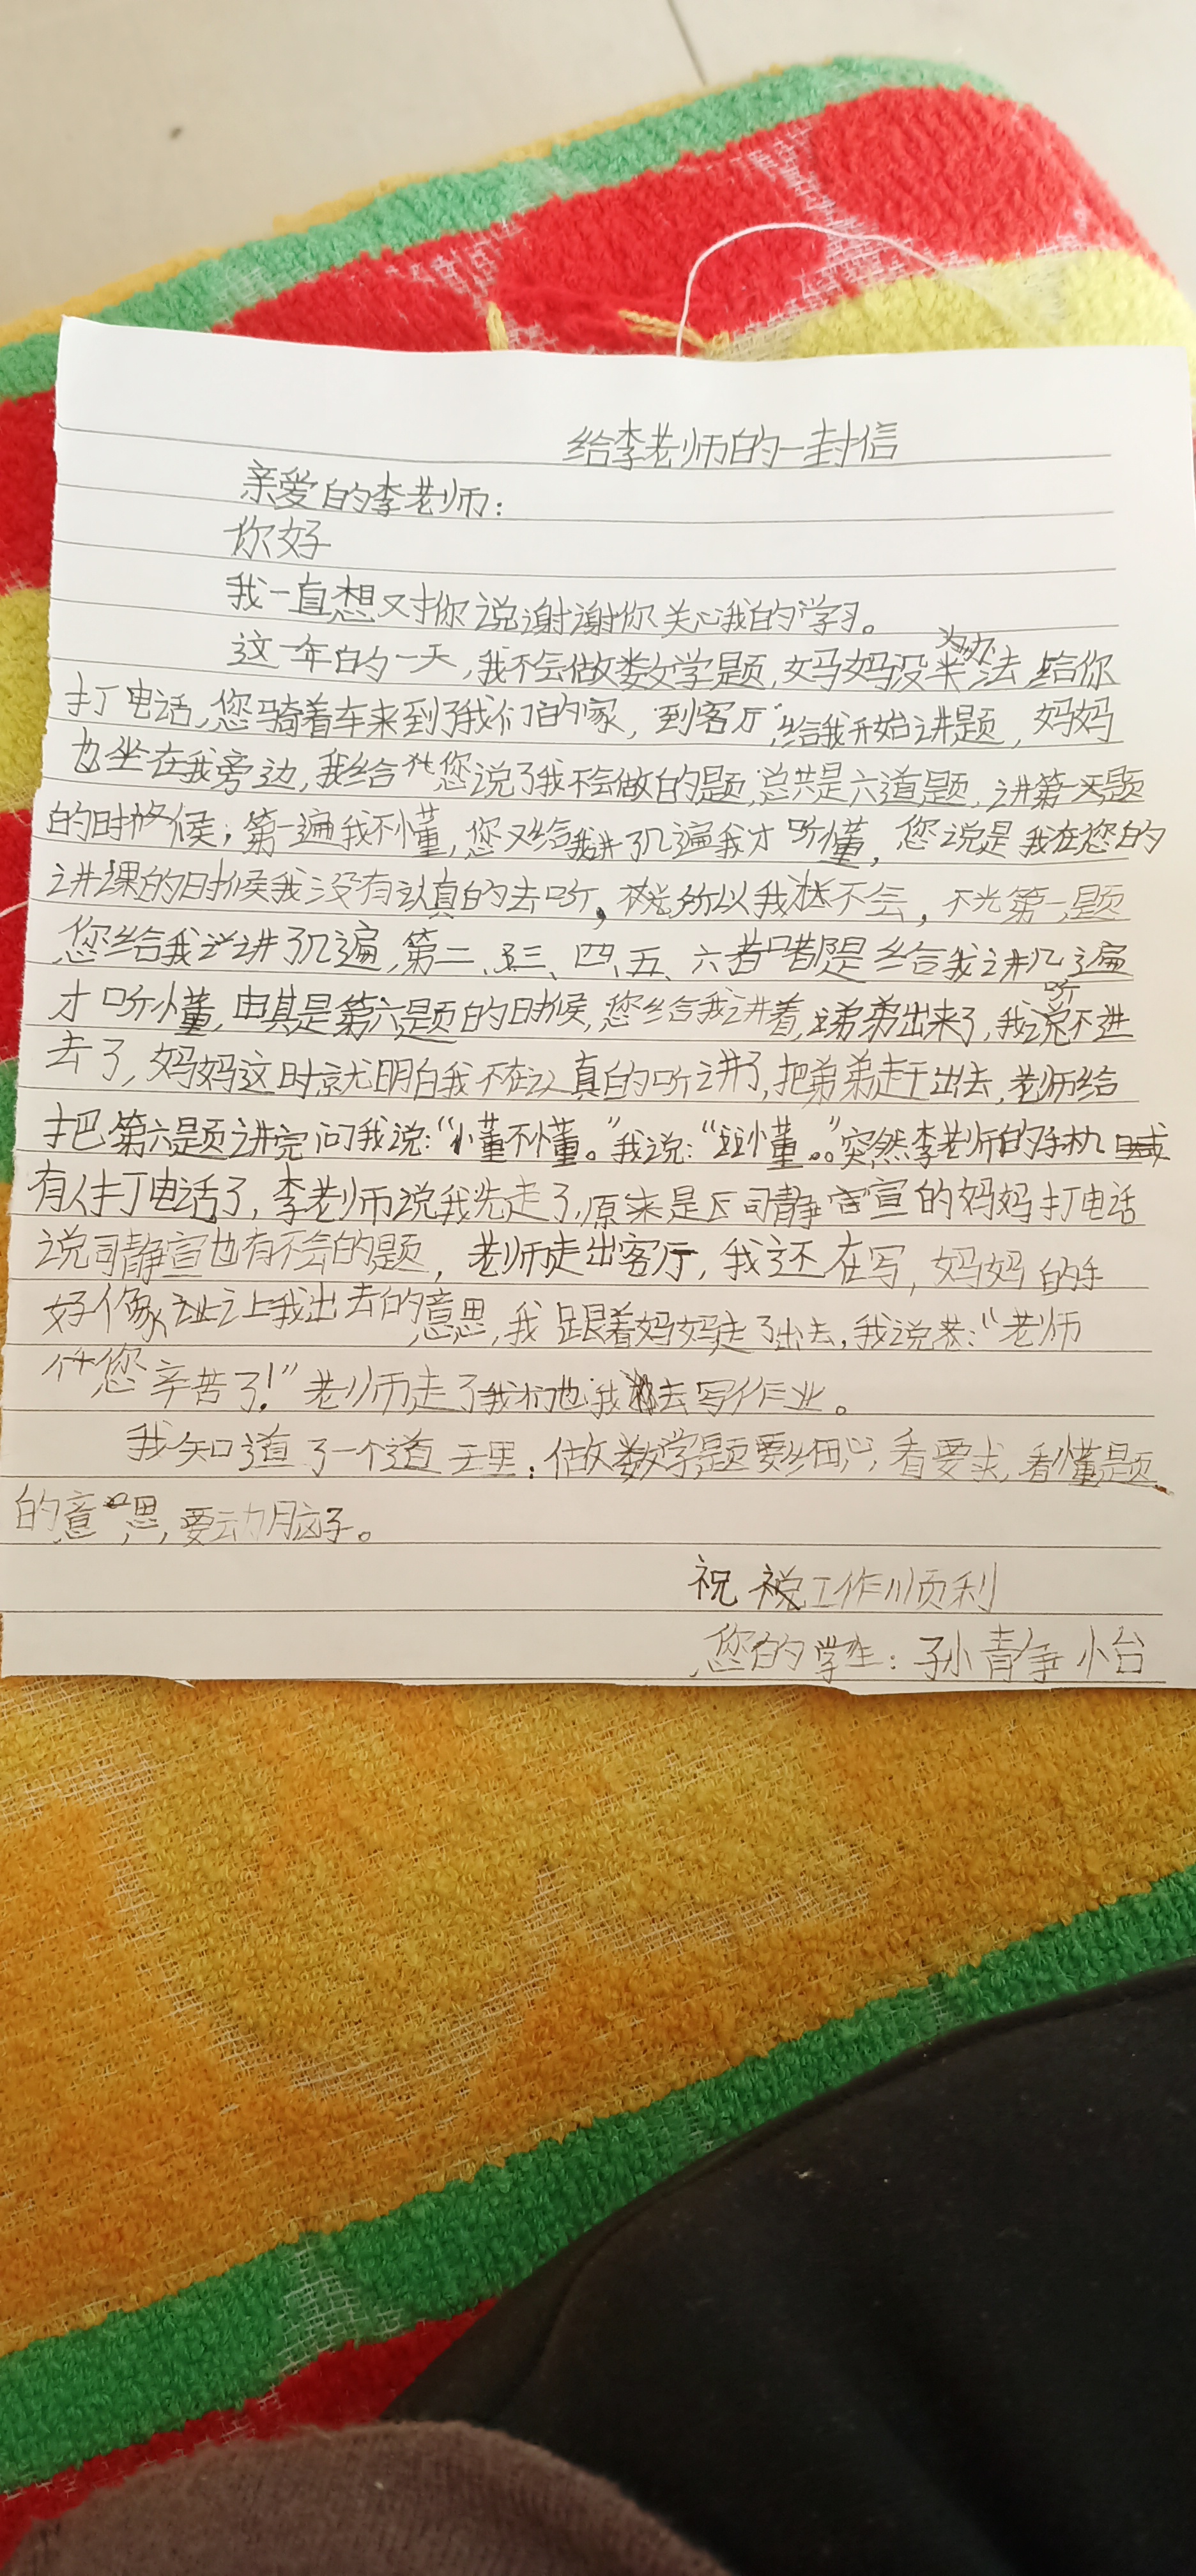 给李老师的一封信
亲爱的李老师：
你好
我一直想对你说谢谢你关心我的学习。
这一年的一天，我不会做数学题，妈妈没办法，给你
打电话，您骑着车来到了我们的家，到客厅，给我开始讲题，妈妈
也坐在我旁边，我给您说了我不会做的题，总共是六道题，讲第一题
的时候，第一遍我不懂，您又给我讲了几遍我才听懂，您说是我在您的
讲课的时候我没有认真的去听，所以我不会，不光第一题
您给我讲了几遍，第二、三、四、五、六都是给我讲几遍
才听懂，由其是第六题的时候，您给我讲着，弟弟出来了，我听不进
去了，妈妈这时就明白我不在认真的听讲了，把弟弟赶出去，老师给
把第六题讲完问我说：“懂不懂。”我说：“懂。”突然李老师的手机
有人打电话了，李老师说我先走了，原来是司静宣的妈妈打电话
说司静宣也有不会的题，老师走出客厅，我还在写，妈妈的手
好像让我出去的意思，我跟着妈妈走了出去，我说：“老师
您辛苦了！”老师走了我也去写作业。
我知道了一个道理：做数学题要细心，看要求，看懂题
的意思，要动脑子。
祝 工作顺利
您的学生：孙静怡